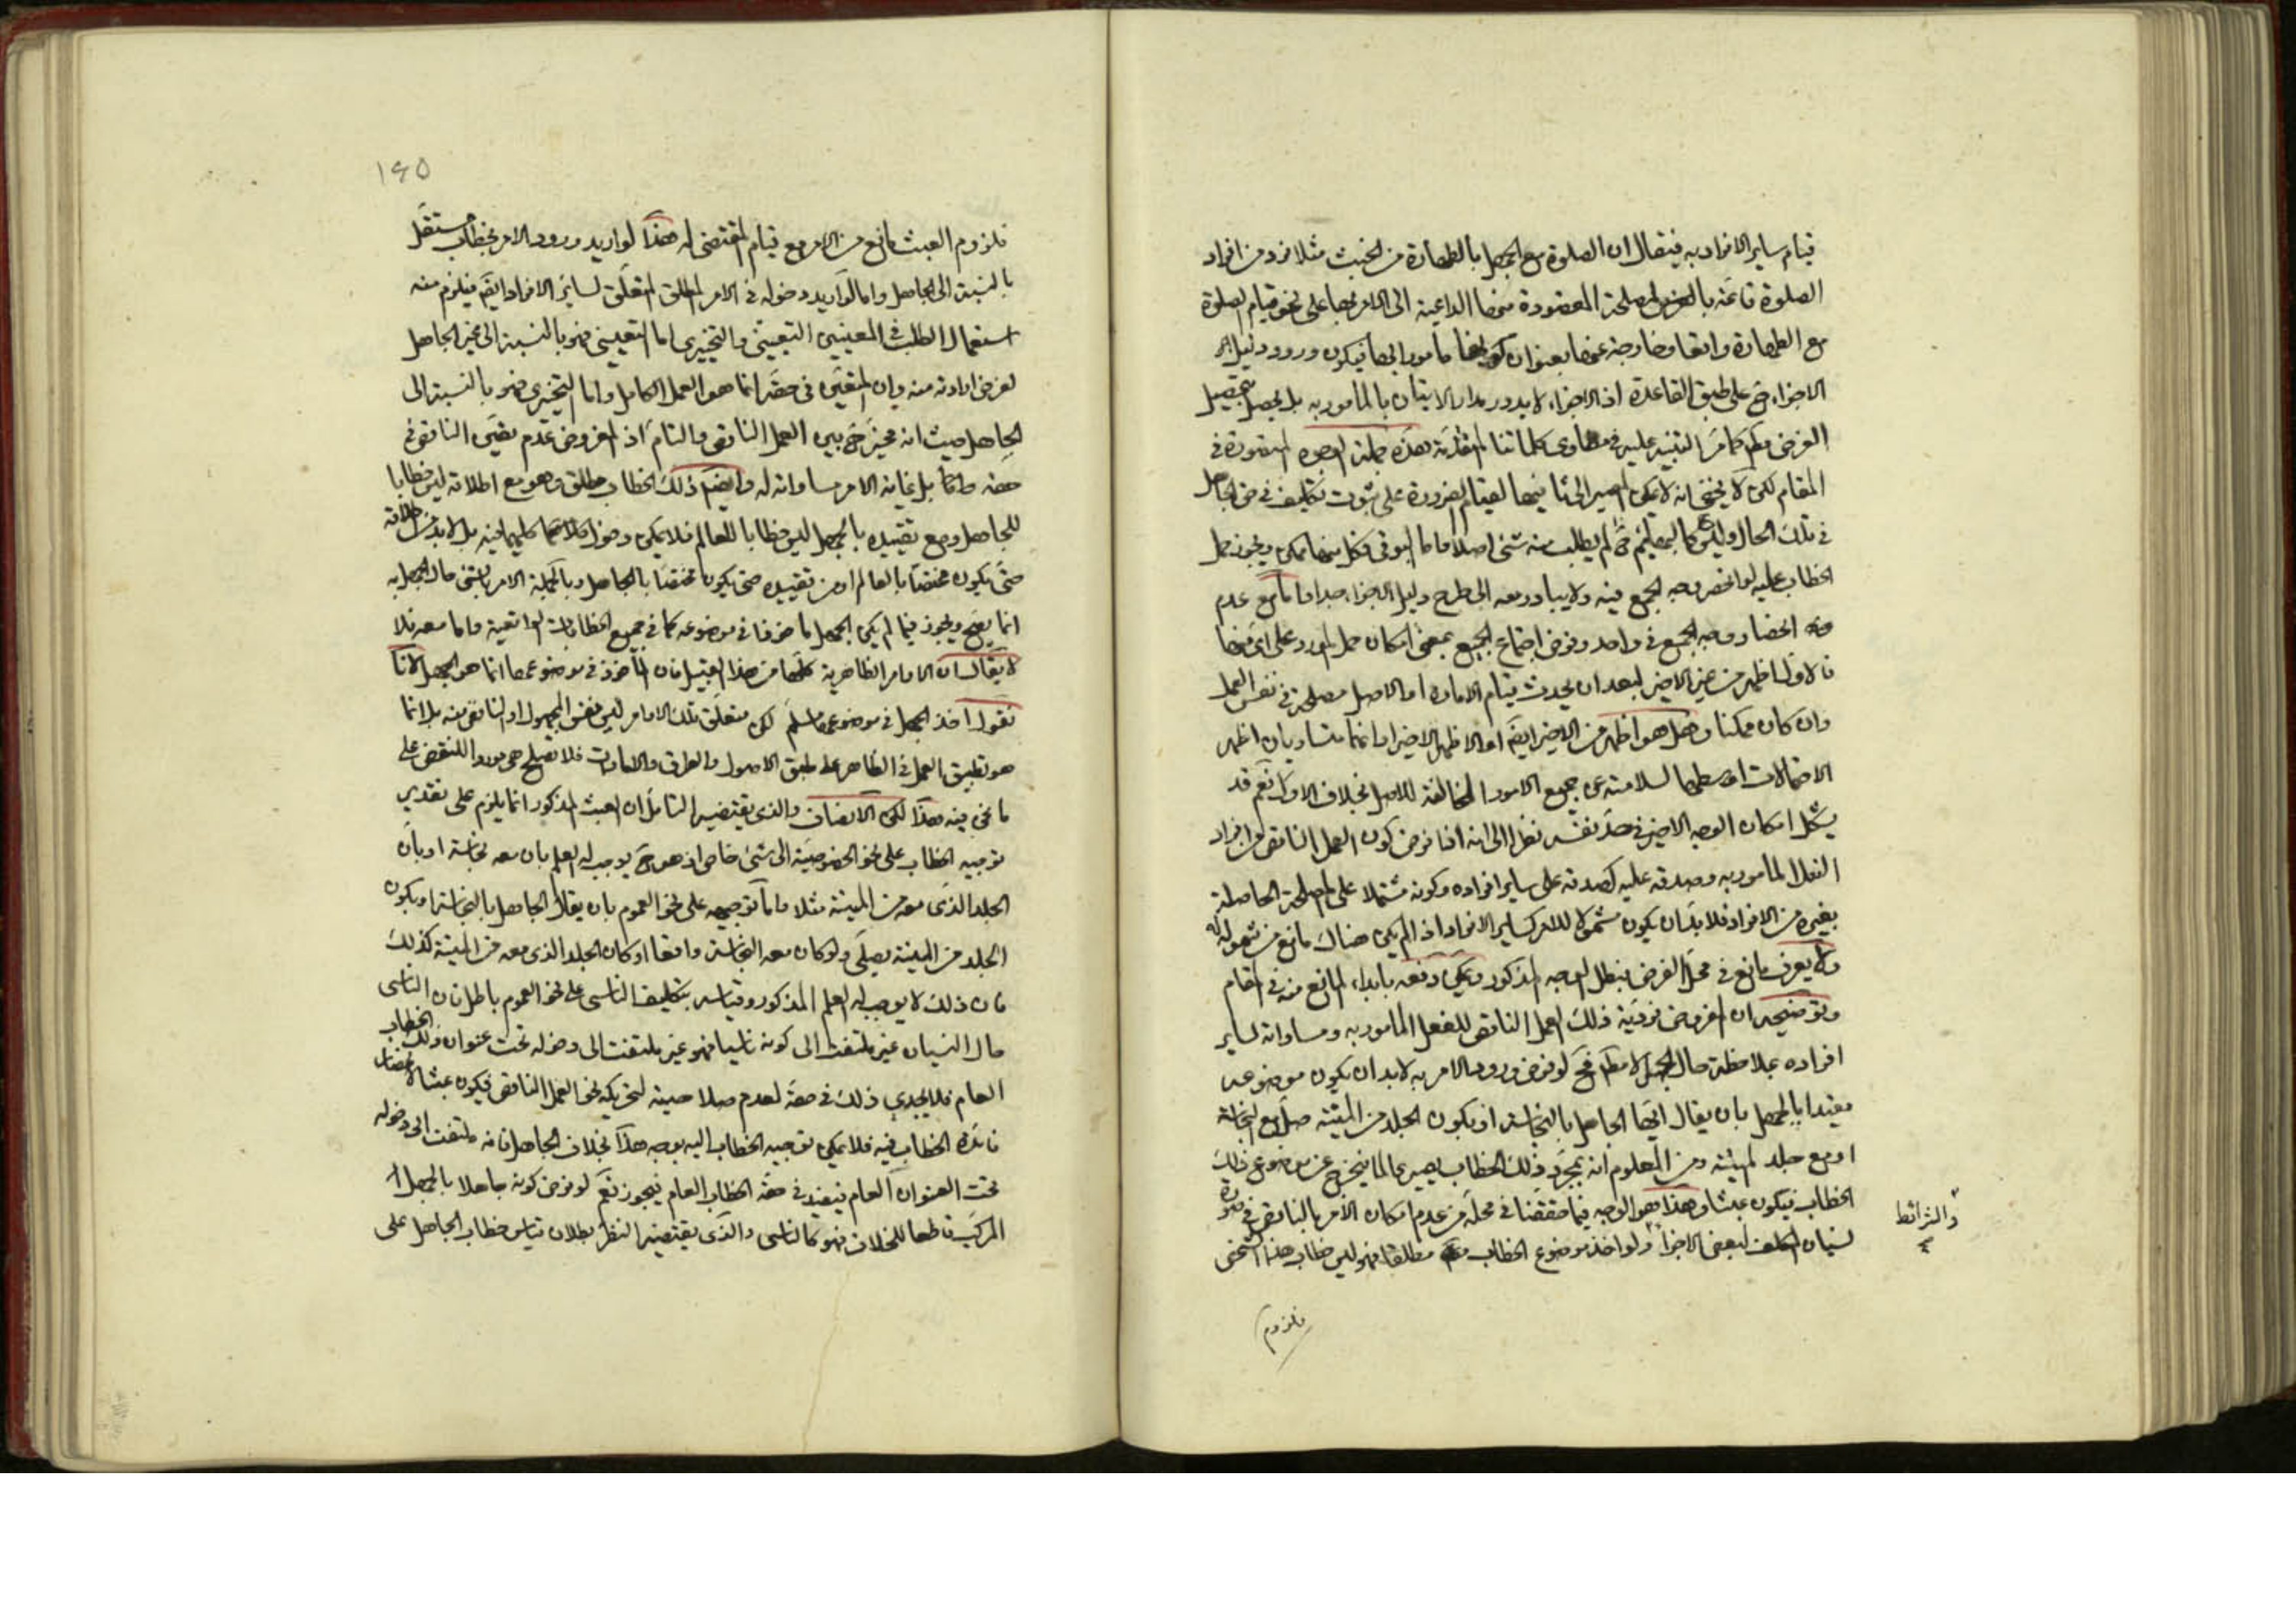 قيام ساير الافراد به فيقال ان الصلوة مع الجهل بالطهارة من الخبث مثلا فرد من افراد
الصلوة قائمة بالغرض والمصلحة المقصودة منها الداعية الى الامر بها على نحو قيام الصلوة
مع الطهارة واقعا وخارجة عنها بعنوان كونها مأمورا بها فيكون ورود دليل
الاجزاء ح على طبق القاعدة اذ الاجزاء لا يدور مدار الاتيان بالمأمور به بل يحصل بتحصيل
الغرض مط كما مر التنبيه عليه في مطاوى كلماتنا المتقدمة هذه جملة الوجوه المتصورة في
المقام لكن لا يخفى انه لا يمكن المصير الى ثانيها لقيام الضرورة على ثبوت تكليف في حق الجاهل
في تلك الحال وليس كالبهائم حتى لم يطلب منه شئ اصلا واما البواقى فكل منها ممكن ويجوز حمل
الخطاب عليه لو انحصر وجه الجمع فيه ولا يبادر معه الى طرح دليل الاجزاء جدا واما مع عدم
انحصار وجه الجمع في واحد وفرض اجتماع الجميع بمعنى امكان حمل المورد على اى منها
فالاول اظهر من غير الاخير لبعد ان يحدث قيام الامارة او الاصل مصلحة في نفس العمل
وان كان ممكنا وهل هو اظهر من الاخير ايضا او الاظهر الاخير او انهما متساويان اظهر
الاحتمالات اوسطها لسلامته عن جميع الامور المخالفة للاصل بخلاف الاول نعم قد
يشكل امكان الوجه الاخير في حد نفسه نظرا الى انه اذا فرض كون العمل الناقص من افراد
الفعل المأمور به وصدقه عليه كصدقه على ساير افراده وكونه مشتملا على المصلحة الحاصلة
بغيره من الافراد فلا بد ان يكون مشمولا للامر كساير الافراد اذا لم يكن هناك مانع من شموله له
ولا يعرف مانع في محل الفرض فبطل الوجه المذكور ويمكن دفعه بابداء المانع منه في المقام
وتوضيحه ان المفروض فردية ذلك العمل الناقص للفعل المأمور به ومساواته لساير
افراده بملاحظة حال الجهل لا مط فح لو فرض ورود الامر به لا بد ان يكون موضوعه
مقيدا بالجهل بان يقال ايها الجاهل بالنجاسة او بكون الجلد من الميتة صل مع النجاسة
او مع جلد الميتة ومن المعلوم انه بمجرد ذلك الخطاب يصير عالما فيخرج عن موضوع ذلك
الخطاب فيكون عبثا وهذا هو الوجه فيما حققنا في محله من عدم امكان الامر بالناقص في صورة
نسيان المكلف لبعض الاجزاء ولو اخذ موضوع الخطاب مطلقا فهو ليس خطاب هذا الشخص
والشرائط
فلزوم
١٤٥
فلزوم العبث مانع من الامر مع قيام المقتضى له هذا لو اريد ورود الامر بخطاب مستقل
بالنسبة الى الجاهل واما لو اريد دخوله في الامر المطلق المتعلق لساير الافراد ايضا فيلزم منه
استعمال الطلب في المعنيين التعيينى والتخييرى اما التعيينى فهو بالنسبة الى غير الجاهل
لفرض ارادته منه وان المتعين في حقه انما هو العمل الكامل واما التخييرى فهو بالنسبة الى
الجاهل حيث انه مخير ح بين العمل الناقص والتام اذ المفروض عدم تعين الناقص في
حقه دائما بل غاية الامر مساواته له وايضا ذلك الخطاب مطلق وهو مع اطلاقه ليس خطابا
للجاهل ومع تقييده بالجهل ليس خطابا للعالم فلا يمكن دخول كليهما فيه بل لا بد من اطلاقه
حتى يكون مختصا بالعالم او من تقييده حتى يكون مختصا بالجاهل وبالجملة الامر بشئ حال الجهل به
انما يصح ويجوز فيما لم يكن الجهل مأخوذا في موضوعه كما في جميع الخطابات الواقعية واما معه فلا
لا يقال ان الاوامر الظاهرية كلها من هذا القبيل فان المأخوذ في موضوعها انما هو الجهل لانا
نقول اخذ الجهل في موضوعها مسلم لكن متعلق تلك الاوامر ليس نفس المجهول او الناقص منه بل انما
هو تطبيق العمل في الظاهر على طبق الاصول والطرق والامارات فلا يصلح هى موردا للنقض على
ما نحن فيه هذا لكن الانصاف والذى يقتضيه التأمل ان العبث المذكور انما يلزم على تقدير
توجيه الخطاب على نحو الخصوصية الى شخص خاص اذ هو ح يوجب له العلم بان معه نجاسة او بان
الجلد الذى معه من الميتة مثلا واما توجيهه على نحو العموم بان يقال الجاهل بالنجاسة او بكون
الجلد من الميتة يصلى ولو كان معه النجاسة واقعا او كان الجلد الذى معه من الميتة كذلك
فان ذلك لا يوجب له العلم المذكور وقياسه بتكليف الناسى على نحو العموم باطل فان الناسى
حال النسيان غير ملتفت الى كونه ناسيا فهو غير ملتفت الى دخوله تحت عنوان ذلك الخطاب
العام فلا يجدى ذلك في حقه لعدم صلاحيته لتحريكه نحو العمل الناقص فيكون عبثا
فائدة الخطاب فيه فلا يمكن توجيه الخطاب اليه بوجه هذا بخلاف الجاهل فانه ملتفت الى دخوله
تحت العنوان العام فيفيد في حقه الخطاب العام فيجوز نعم لو فرض كونه جاهلا بالجهل
المركب قاطعا للخلاف فهو كالناسى والذى يقتضيه النظر بطلان قياس خطاب الجاهل على